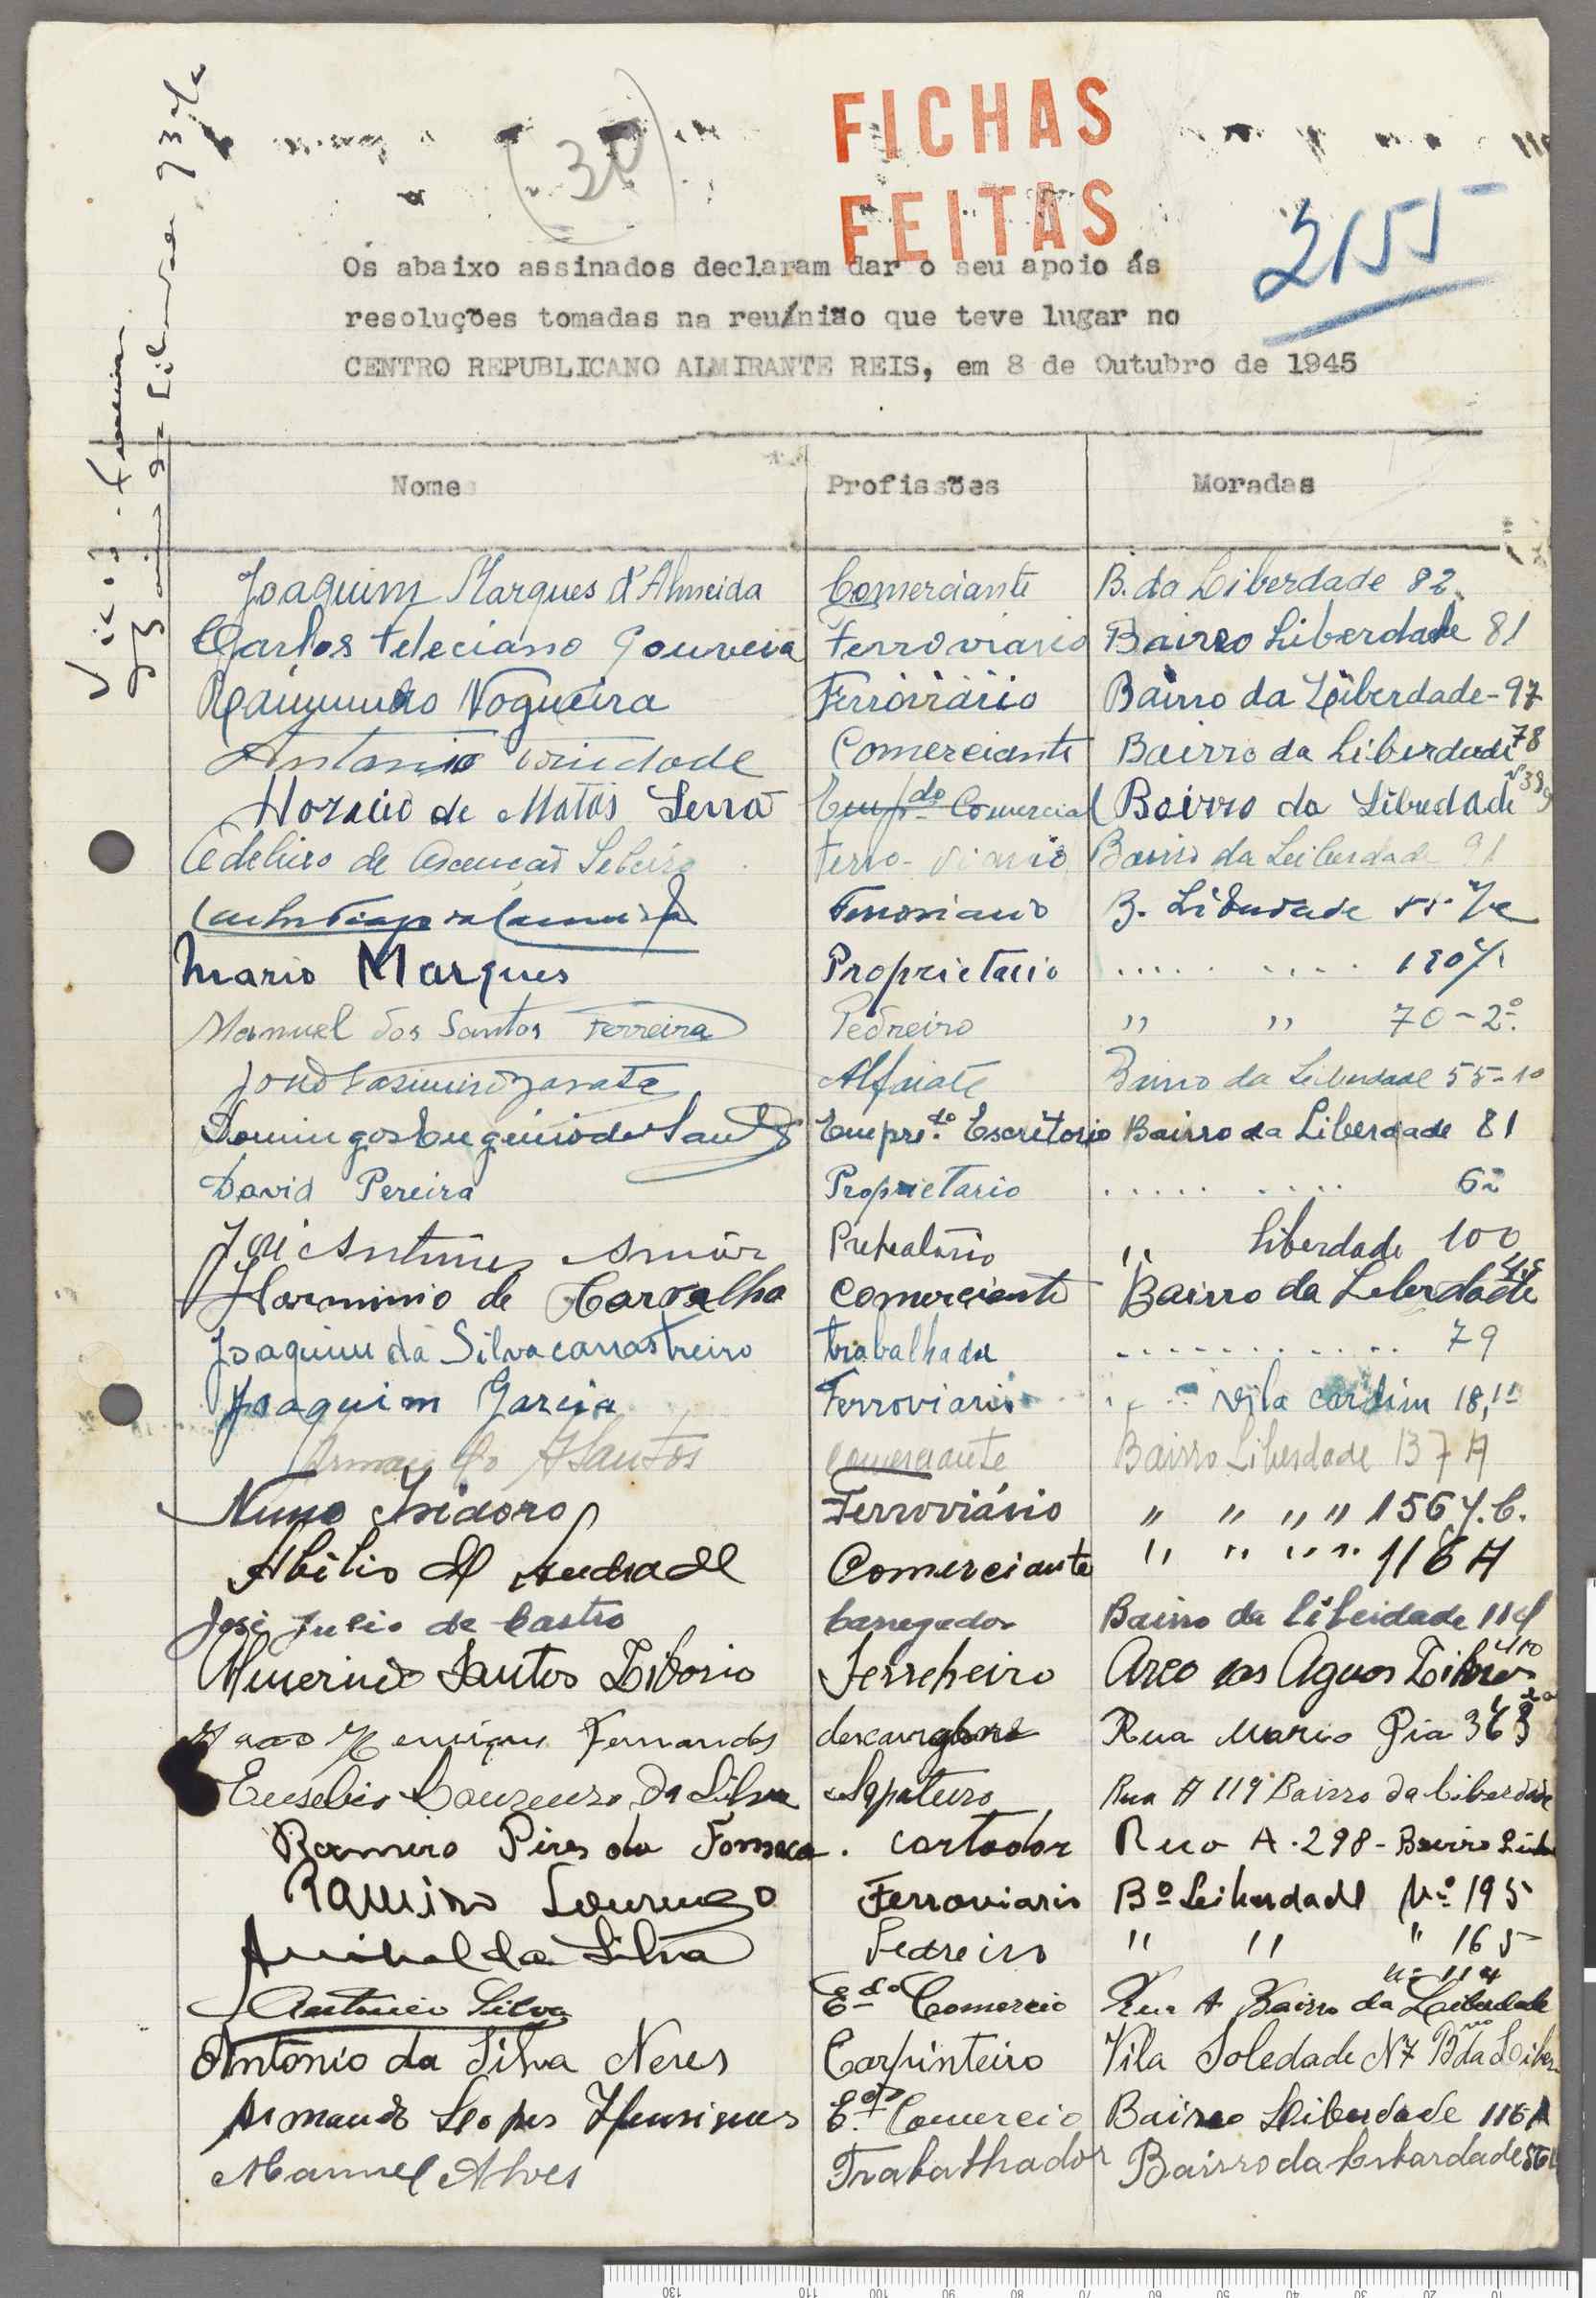 FICHAS
FEITAS
(30)
2155
Os abaixo assinados declaram dar o seu apoio ás
resoluções tomadas na reu/nião que teve lugar no
CENTRO REPUBLICANO ALMIRANTE REIS, em 8 de Outubro de 1945
Nomes Profissões Moradas
Joaquim Marques d'Almeida Comerciante B. da Liberdade 82
Carlos Feleciano Gouveia Ferroviario Bairro Liberdade 81
Raimundo Nogueira Ferroviário Bairro da Liberdade - 97
Antonio Trindade Comerciante Bairro da Liberdade 78
Horacio de Matos Serra Emp.do Comercial Bairro da Liberdade
de Ascenção Ferro-viario Bairro da Leiberdade 91
Ferroviario B. Liberdade
Mario Marques Proprietario ..... .....
Manuel dos Santos Ferreira Pedreiro " " 70-2º
Alfaiate Bairro da Liberdade 55-10
Domingos Eugénio dos Santos Empre.do Escritorio Bairro da Liberdade 81
David Pereira Proprietario ..... ..... 62
José Antunes " Liberdade 100
Herminio de Carvalho Comerciante Bairro da Leberdade
Joaquim da Silva carrastreiro trabalhador ............ 79
Joaquim Garcia Ferroviario vila cardim 18, 1º
Armando A Santos comerciante Bairro Liberdade 137 A
Nuno Isidoro Ferroviário " " " " 156 r/c.
Abilio d' Andrade Comerciante " " " " 116 A
José Julio de Castro Carregador Bairro da Liberdade
Santos Liborio Ferreheiro Arco das Aguas Libres
Henrique Fernandes Rua Maria Pia
Eusebio Lourenço da Silva Sapateiro Rua A 119 Bairro da Liberdade
Ramiro Pires da Fonseca. cortador Rua A. 298 - Bairro
Ramiro Lourenço Ferroviario Bº Leiberdade Nº 195
Anibal da Silva Pedreiro " " " 165
Antonio Silva E.do Comercio Rua A Bairro da Liberdade nº 114
Antonio da Silva Neves Carpinteiro Vila Soledade N 7 Brro da Liber
Armando Lopes Henriques E.do Comercio Bairro Liberdade 116 A
Manuel Alves Trabalhador Bairro da Lebardade